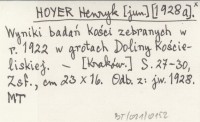 HOYER Henryk [jun] [1928a].x
Wyniki badań kości zebranych w
r. 1922 w grotach Doliny Koście-
liskiej. — [Kraków.] S. 27-30,
Zsf., cm 23 x 16. Odb. z: jw. 1928.
MT